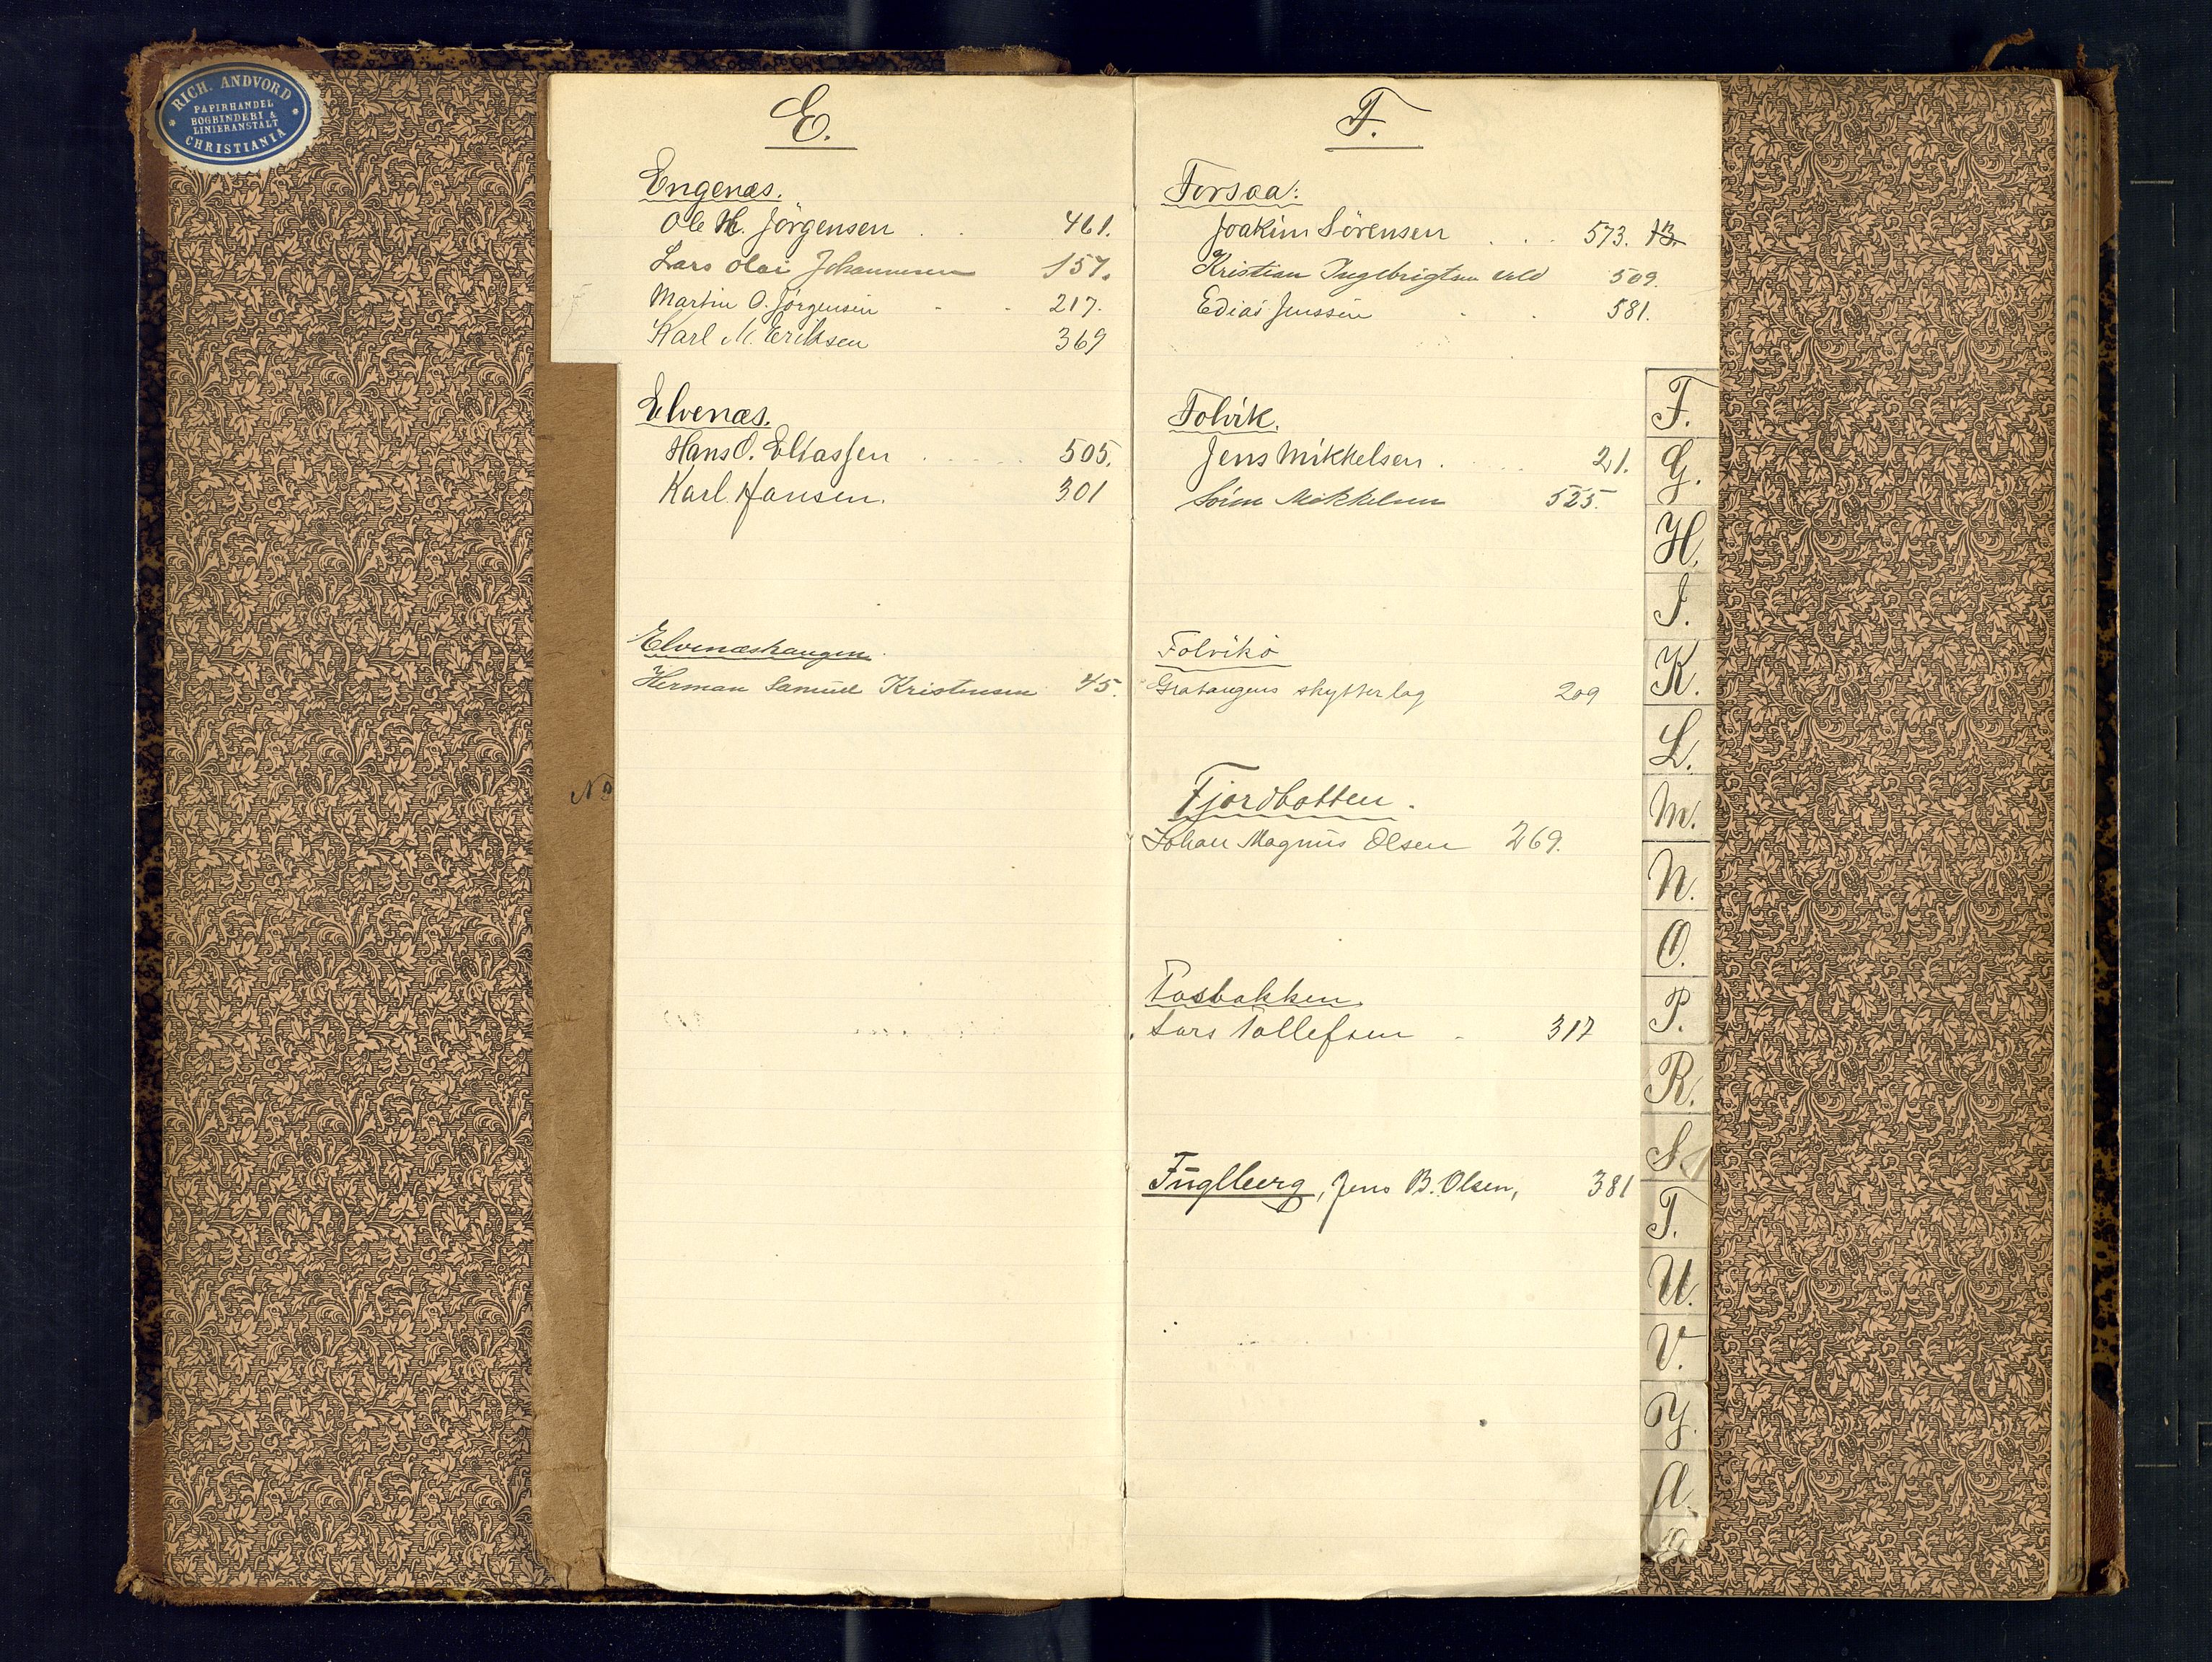 RICH. ANDVORD
PAPIRHANDEL
BOGBINDERI &
LINIERANSTALT
CHRISTIANIA
E.
Engenæs.
Ole H. Jörgensen . . 461.
Lars Olai Johannesen 157.
Martin O. Jörgensen - - 217.
Karl M. Eriksen 369
Elvenæs.
Hans O. Eliassen . . . . . 505.
Karl Hansen. 301
Elvenæshaugen.
Herman Samuel Kristensen 45.
No
F.
Forsaa:
Joakim Sörensen . . . 573. 13.
Kristian Ingebrigtsen 509.
Edias Jenssen . . 581.
Folvik.
Jens Mikkelsen . . . . 21.
Sören Mikkelsen 525.
Folvik
Gratangens skytterlag 209
Fjordbotten.
Johan Magnus Olsen 269.
Fosbakken.
Lars Tollefsen - 317
Fuglberg, Jens B. Olsen, 381
F.
G.
H.
I.
K.
L.
M.
N.
O.
P.
R.
S.
T.
U.
V.
Y.